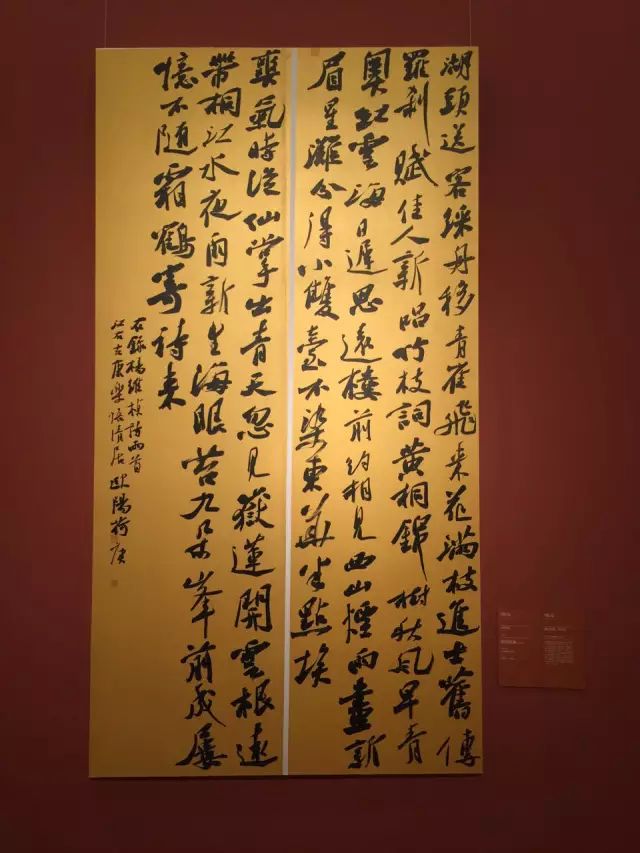 湖頭送客綵舟移青雀飛來花滿枝進士舊傳
羅刹賦佳人新唱竹枝詞黃桐錦樹秋風早青
奧紅雲海日遲思遠樓前約相見西山煙雨畫新
眉星灘分得小雙臺不染東華半點埃
爽氣時從仙掌出青天忽見嶽蓮開雲根遠
帶桐江水夜雨新生海眼苔九朵峯前成屢
憶不隨霜鶴寄詩來
右錄楊維楨詩兩首
江右古康樂悟情居歐陽荷庚